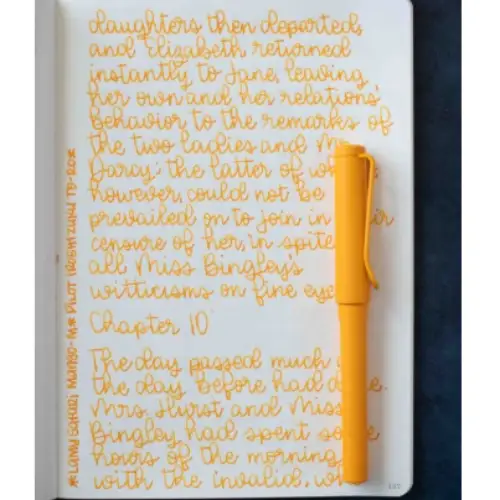 daughters then departed,
and Elizabeth returned
instantly to Jane, leaving
her own and her relations'
behavior to the remarks of
the two ladies and
Darcy; the latter of
however, could not be
prevailed on to join in
censure of her, in spite
all Miss Bingley's
witticisms on fine
Chapter 10
The day passed much
the day before had
Mrs. Hurst and Miss
Bingley had spent
hours of the morning
with the invalid,
*Lamy Safari Mango-M* Pilot Iroshizuku Yu-Yake